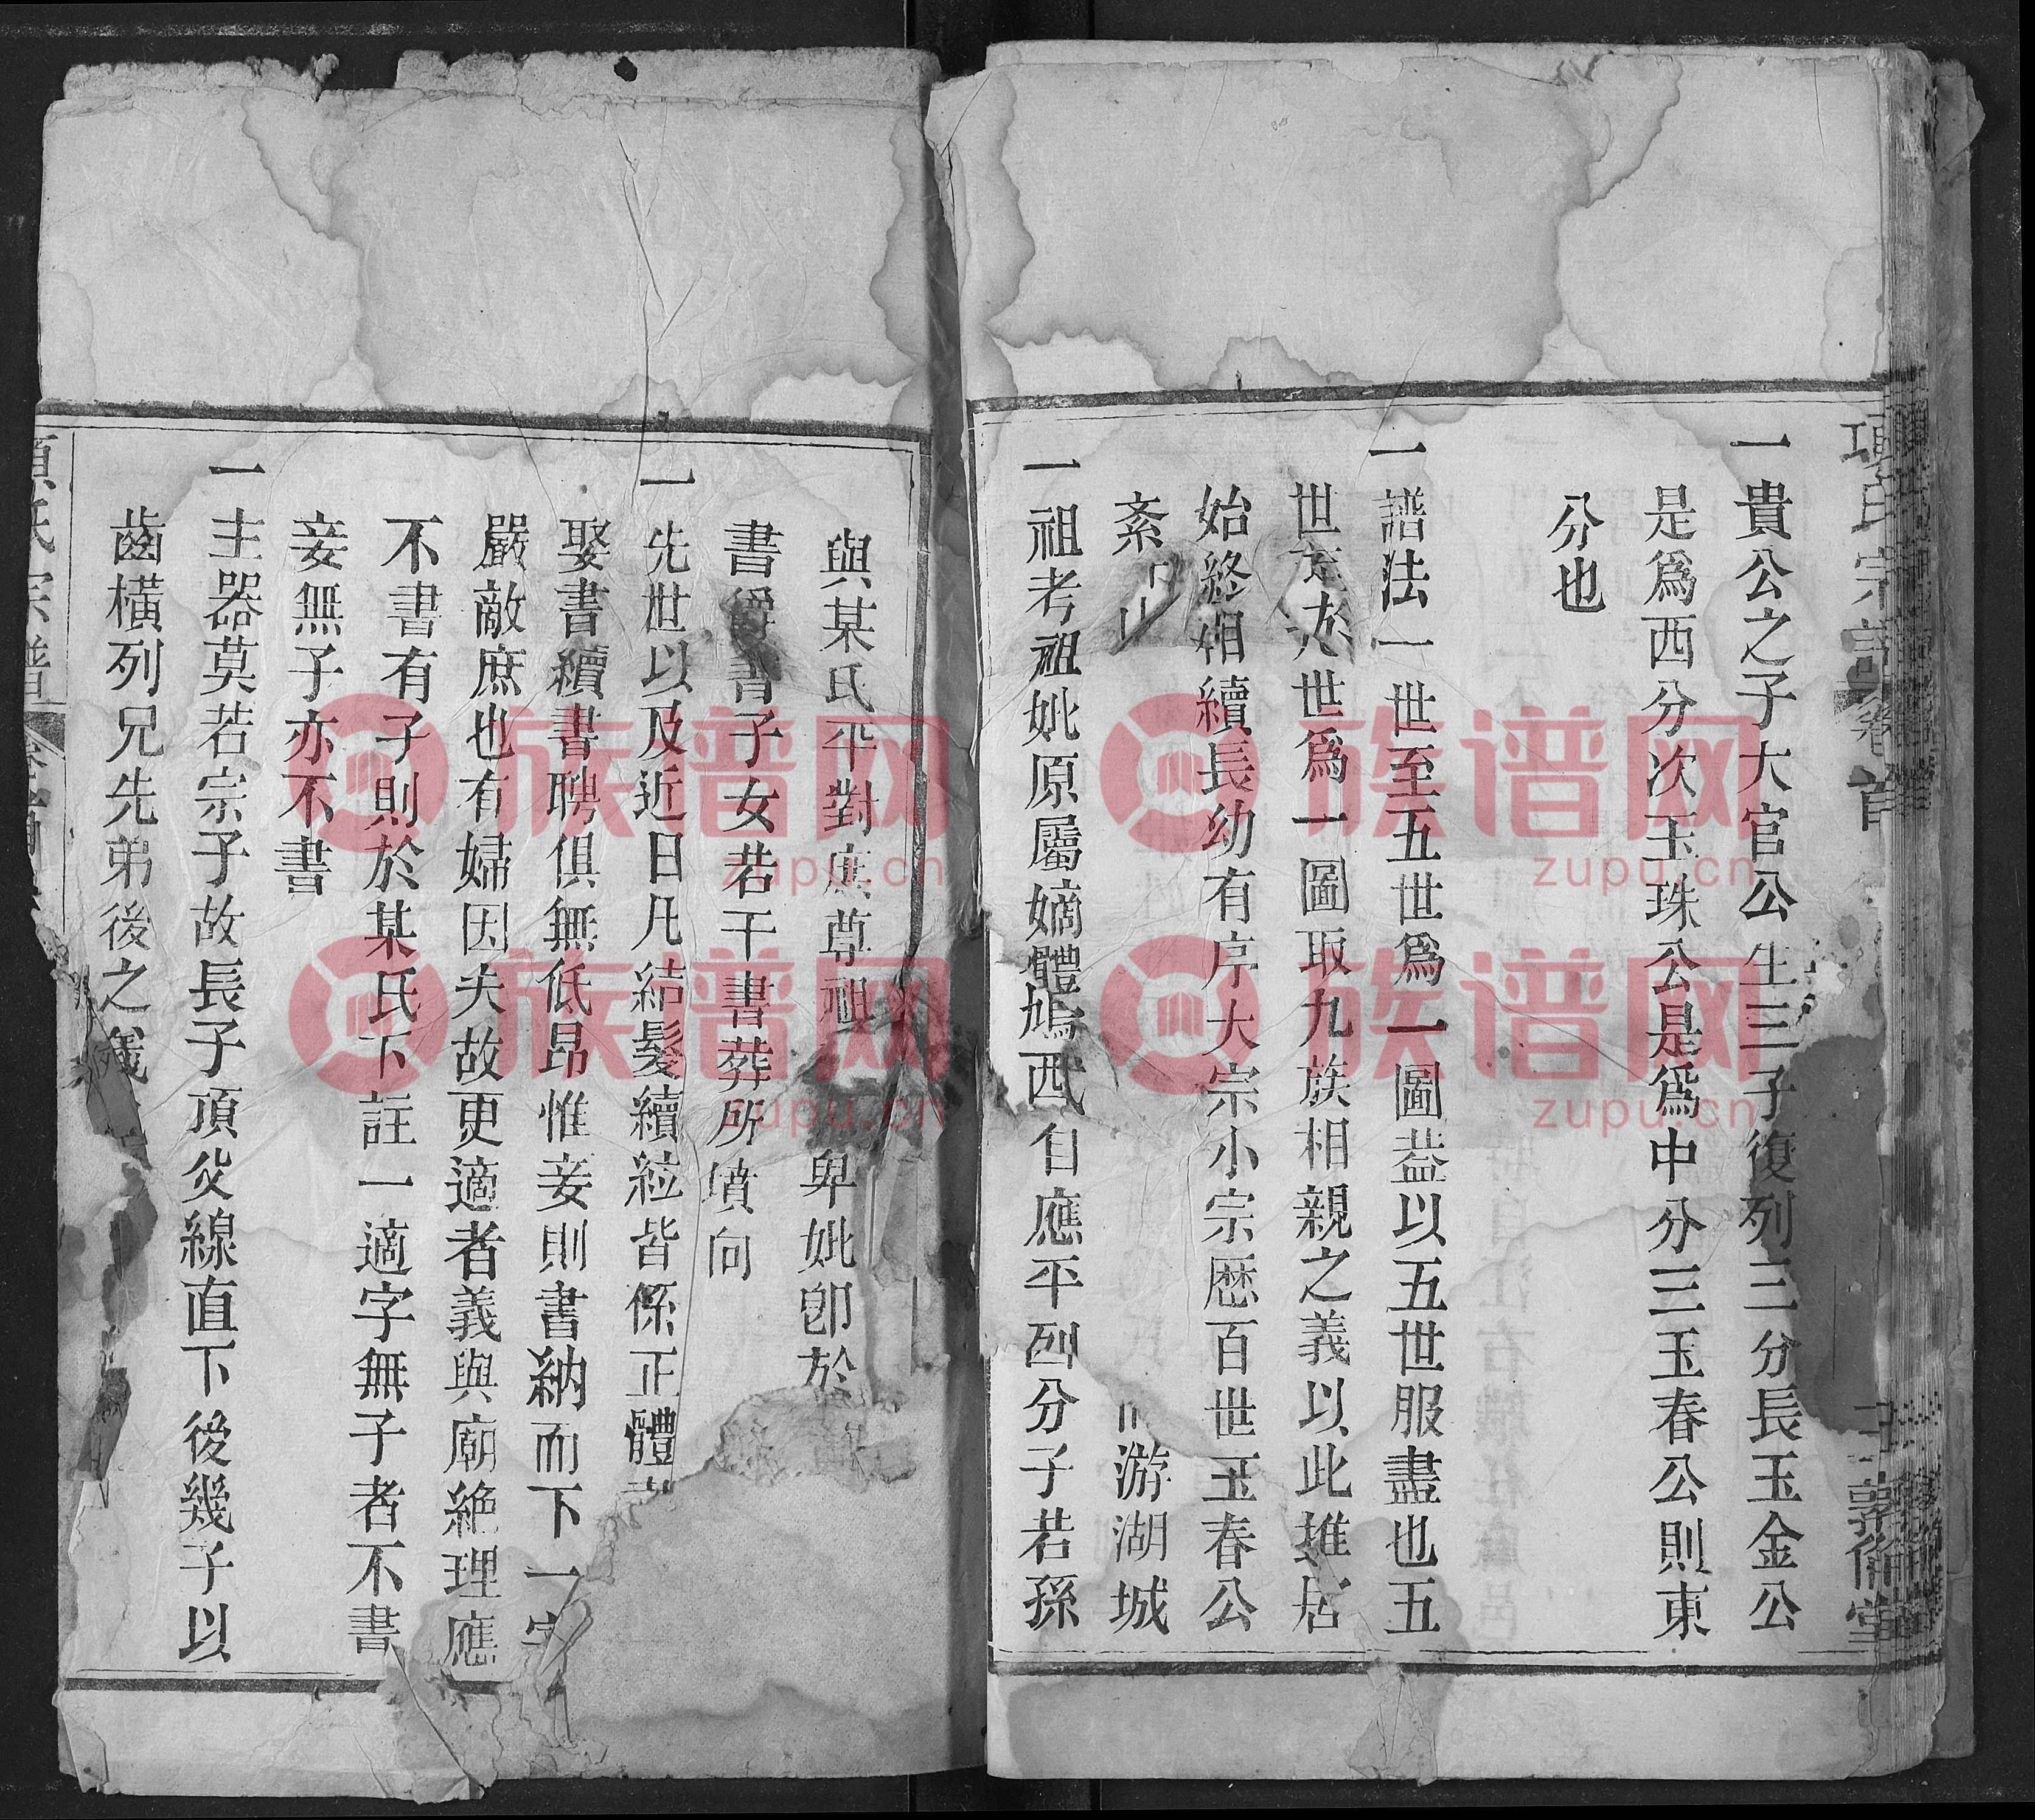 項氏宗譜 卷首
敦倫堂
一貴公之子大官公生三子復列三分長玉金公
是爲西分次玉珠公是爲中分三玉春公則東
分也
一譜法一世至五世爲一圖葢以五世服盡也五
世九世爲一圖取九族相親之義以此推居
始終相續長幼有序大宗小宗歷百世玉春公
紊 游湖城
一祖考祖妣原屬嫡體鳩 自應平列分子若孫
與某氏平對庶尊祖 卑妣卽於
書 書子女若干書葬所墳向
一先世以及近日凡結髮續絃皆係正體
娶書續書聘俱無低昂惟妾則書納而下一字
嚴敵庶也有婦因夫故更適者義與廟絶理應
不書有子則於某氏下註一適字無子者不書
妾無子亦不書
一主器莫若宗子故長子頂父線直下後幾子以
齒橫列兄先弟後之義
項氏宗譜 卷首
族谱网
zupu.cn
族谱网
zupu.cn
族谱网
zupu.cn
族谱网
zupu.cn